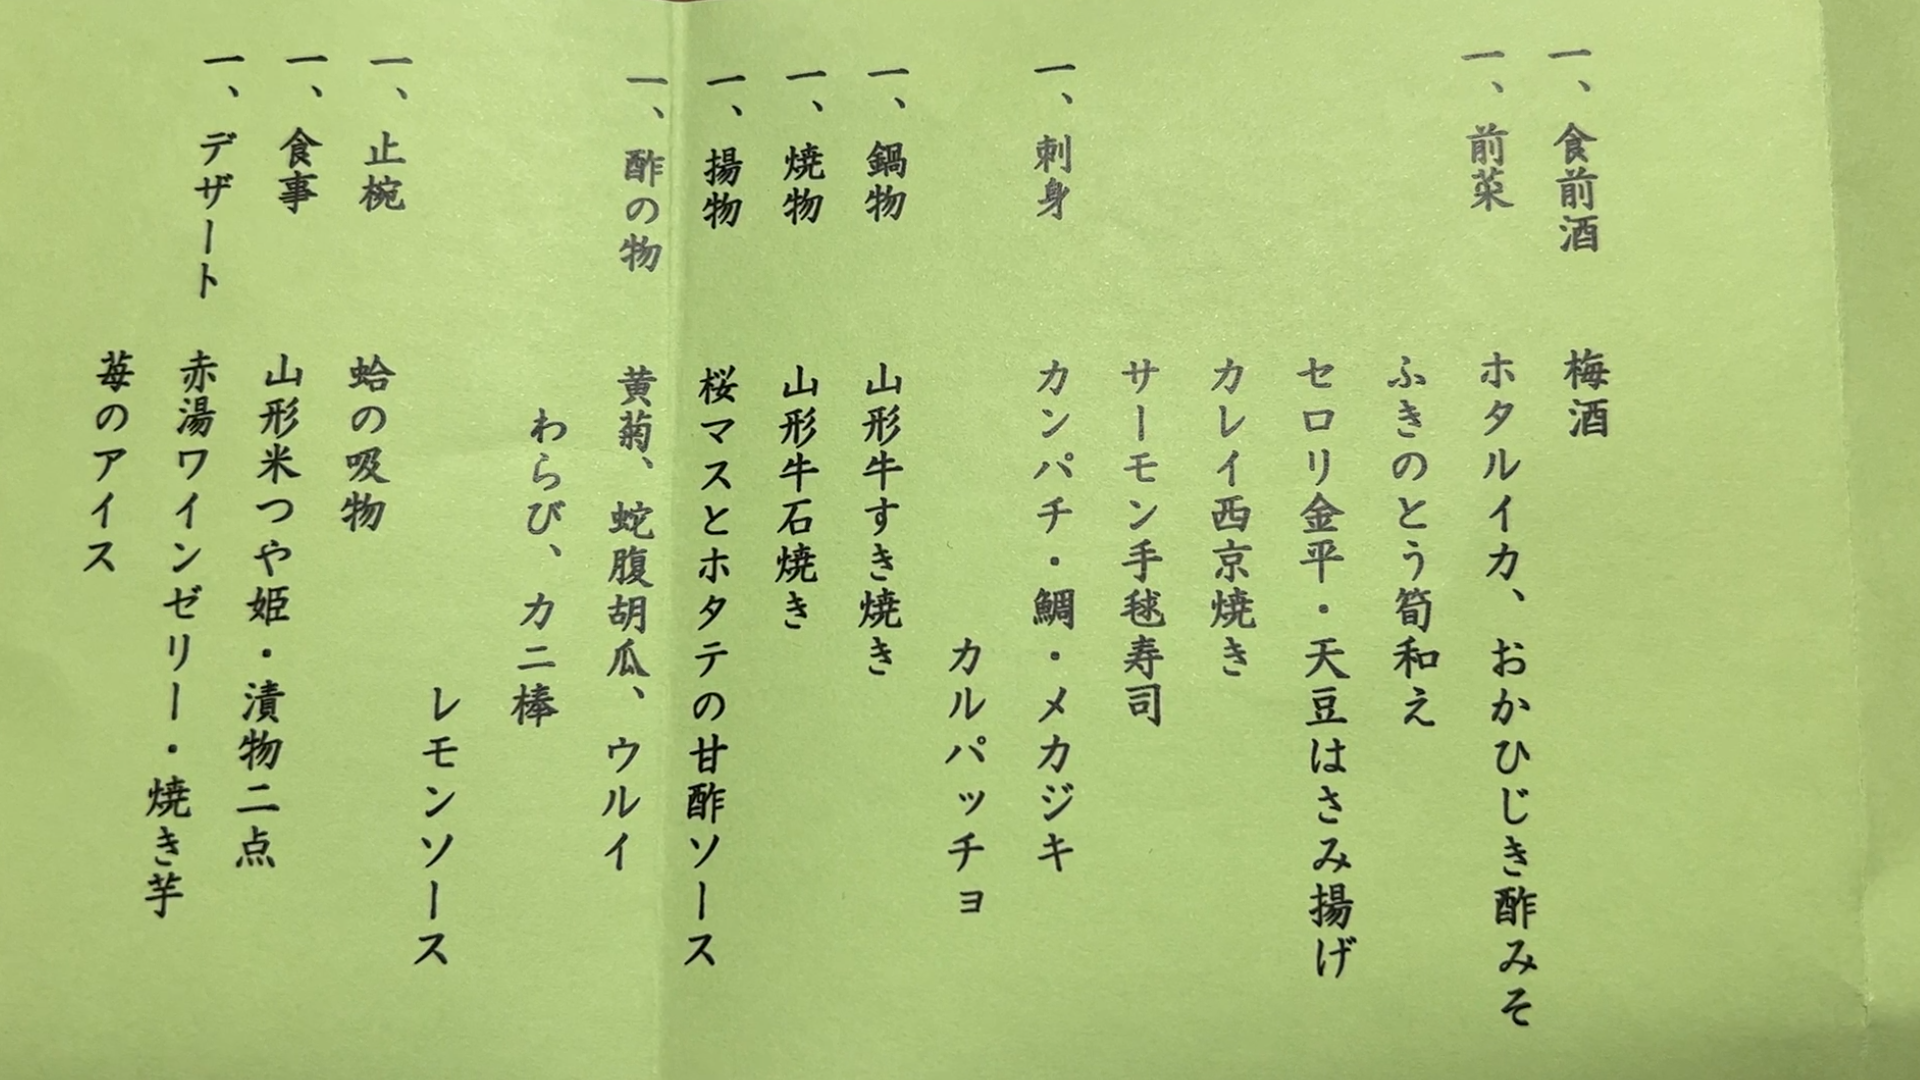 一、食前酒 梅酒
一、前菜 ホタルイカ、おかひじき酢みそ
ふきのとう筍和え
セロリ金平・天豆はさみ揚げ
カレイ西京焼き
サーモン手毬寿司
一、刺身 カンパチ・鯛・メカジキ
カルパッチョ
一、鍋物 山形牛すき焼き
一、焼物 山形牛石焼き
一、揚物 桜マスとホタテの甘酢ソース
一、酢の物 黄菊、蛇腹胡瓜、ウルイ
わらび、カニ棒
レモンソース
一、止椀 蛤の吸物
一、食事 山形米つや姫・漬物二点
一、デザート 赤湯ワインゼリー・焼き芋
苺のアイス